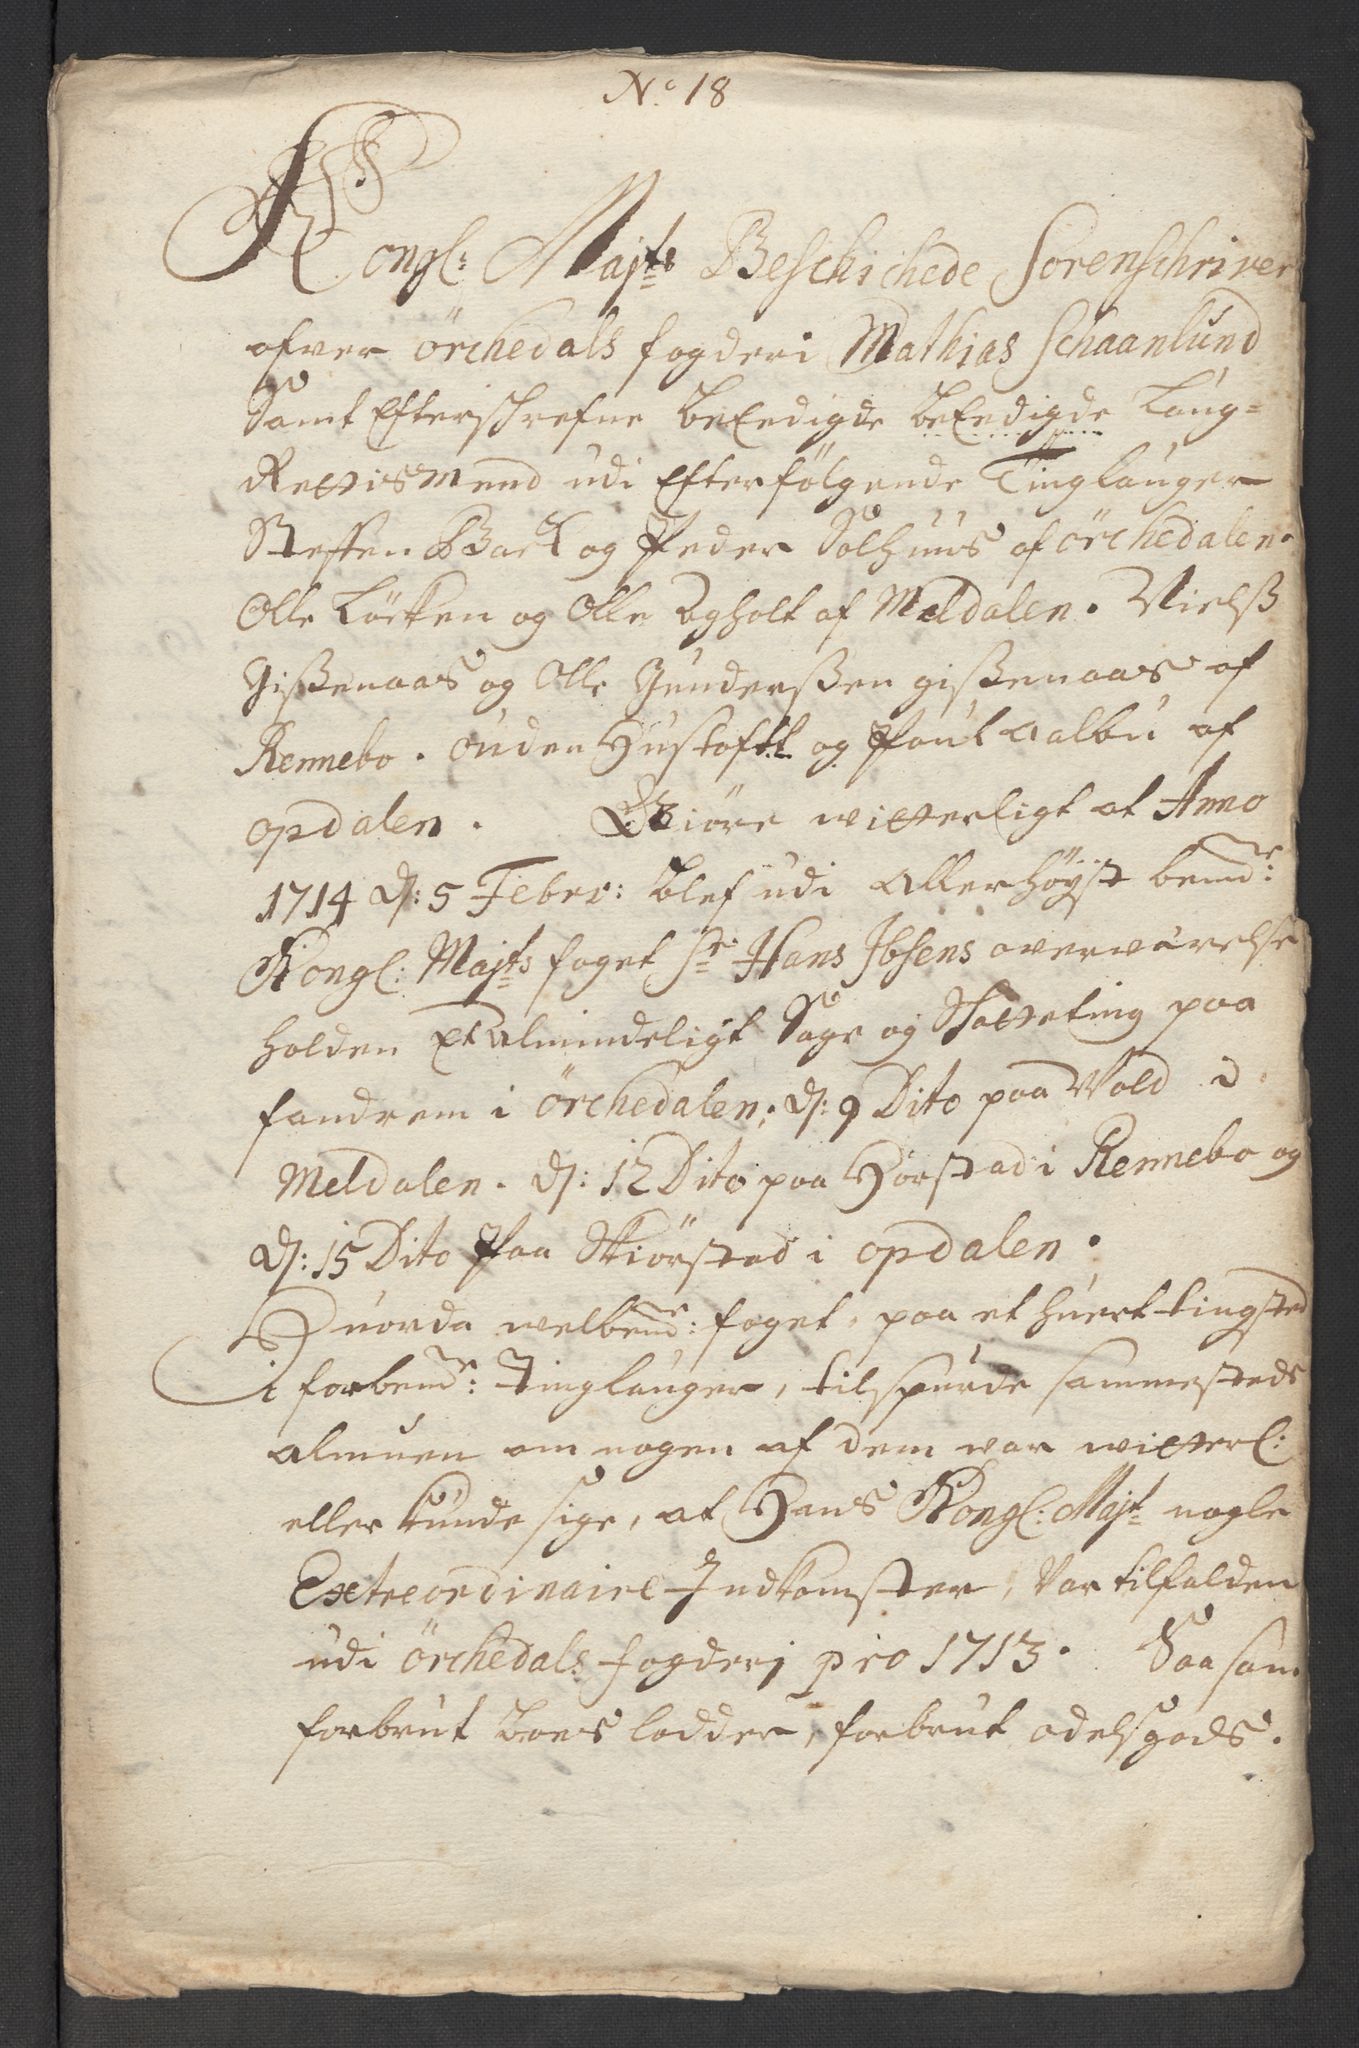 No 18
Kongl: Majts Beschichede Sorenschriver
ofver Örchedals fogderi Mathias Schaanlund
Samt Efterschrefne beEedigde beEedigde Laug=
Rettismend udi Efterfölgende Tinglauger
Steffen Bach og Peder Solhuus af Örchedalen.
Olle Löcken og Olle Agholt af Meldalen. Nielß
Gißenaas og Olle Gunderßen gißenaas af
Rennebo. Ouden Hustoftt og Poul Aalbu af
opdalen. Giöre witterligt at Anno
1714 d: 5 Febr: blef udi Allerhöyst bemd:
Kongl: Majts foget Sr Hans Ibsens overwærelse
holden Et Almindeligt Sage og Skatteting paa
fandrem i Örchedalen; d: 9 Dito paa Vold i
Meldalen. d: 12 Dito paa Hörstad i Rennebo og
d: 15 Dito Paa Skiörsted i opdalen.
Huorda welbemd: foget, paa et huert tingsted
i forbemd: Tinglauger, tilspurde sammesteds
almuen om nogen af dem war witterl:
eller kunde sige, at Hans Kongl: Majt nogle
Extreordinaire Indkomster, var tilfalden
udi Örchedals fogderj pro 1713. Saasom
forbrut boes lodder, forbrut odelsgods.